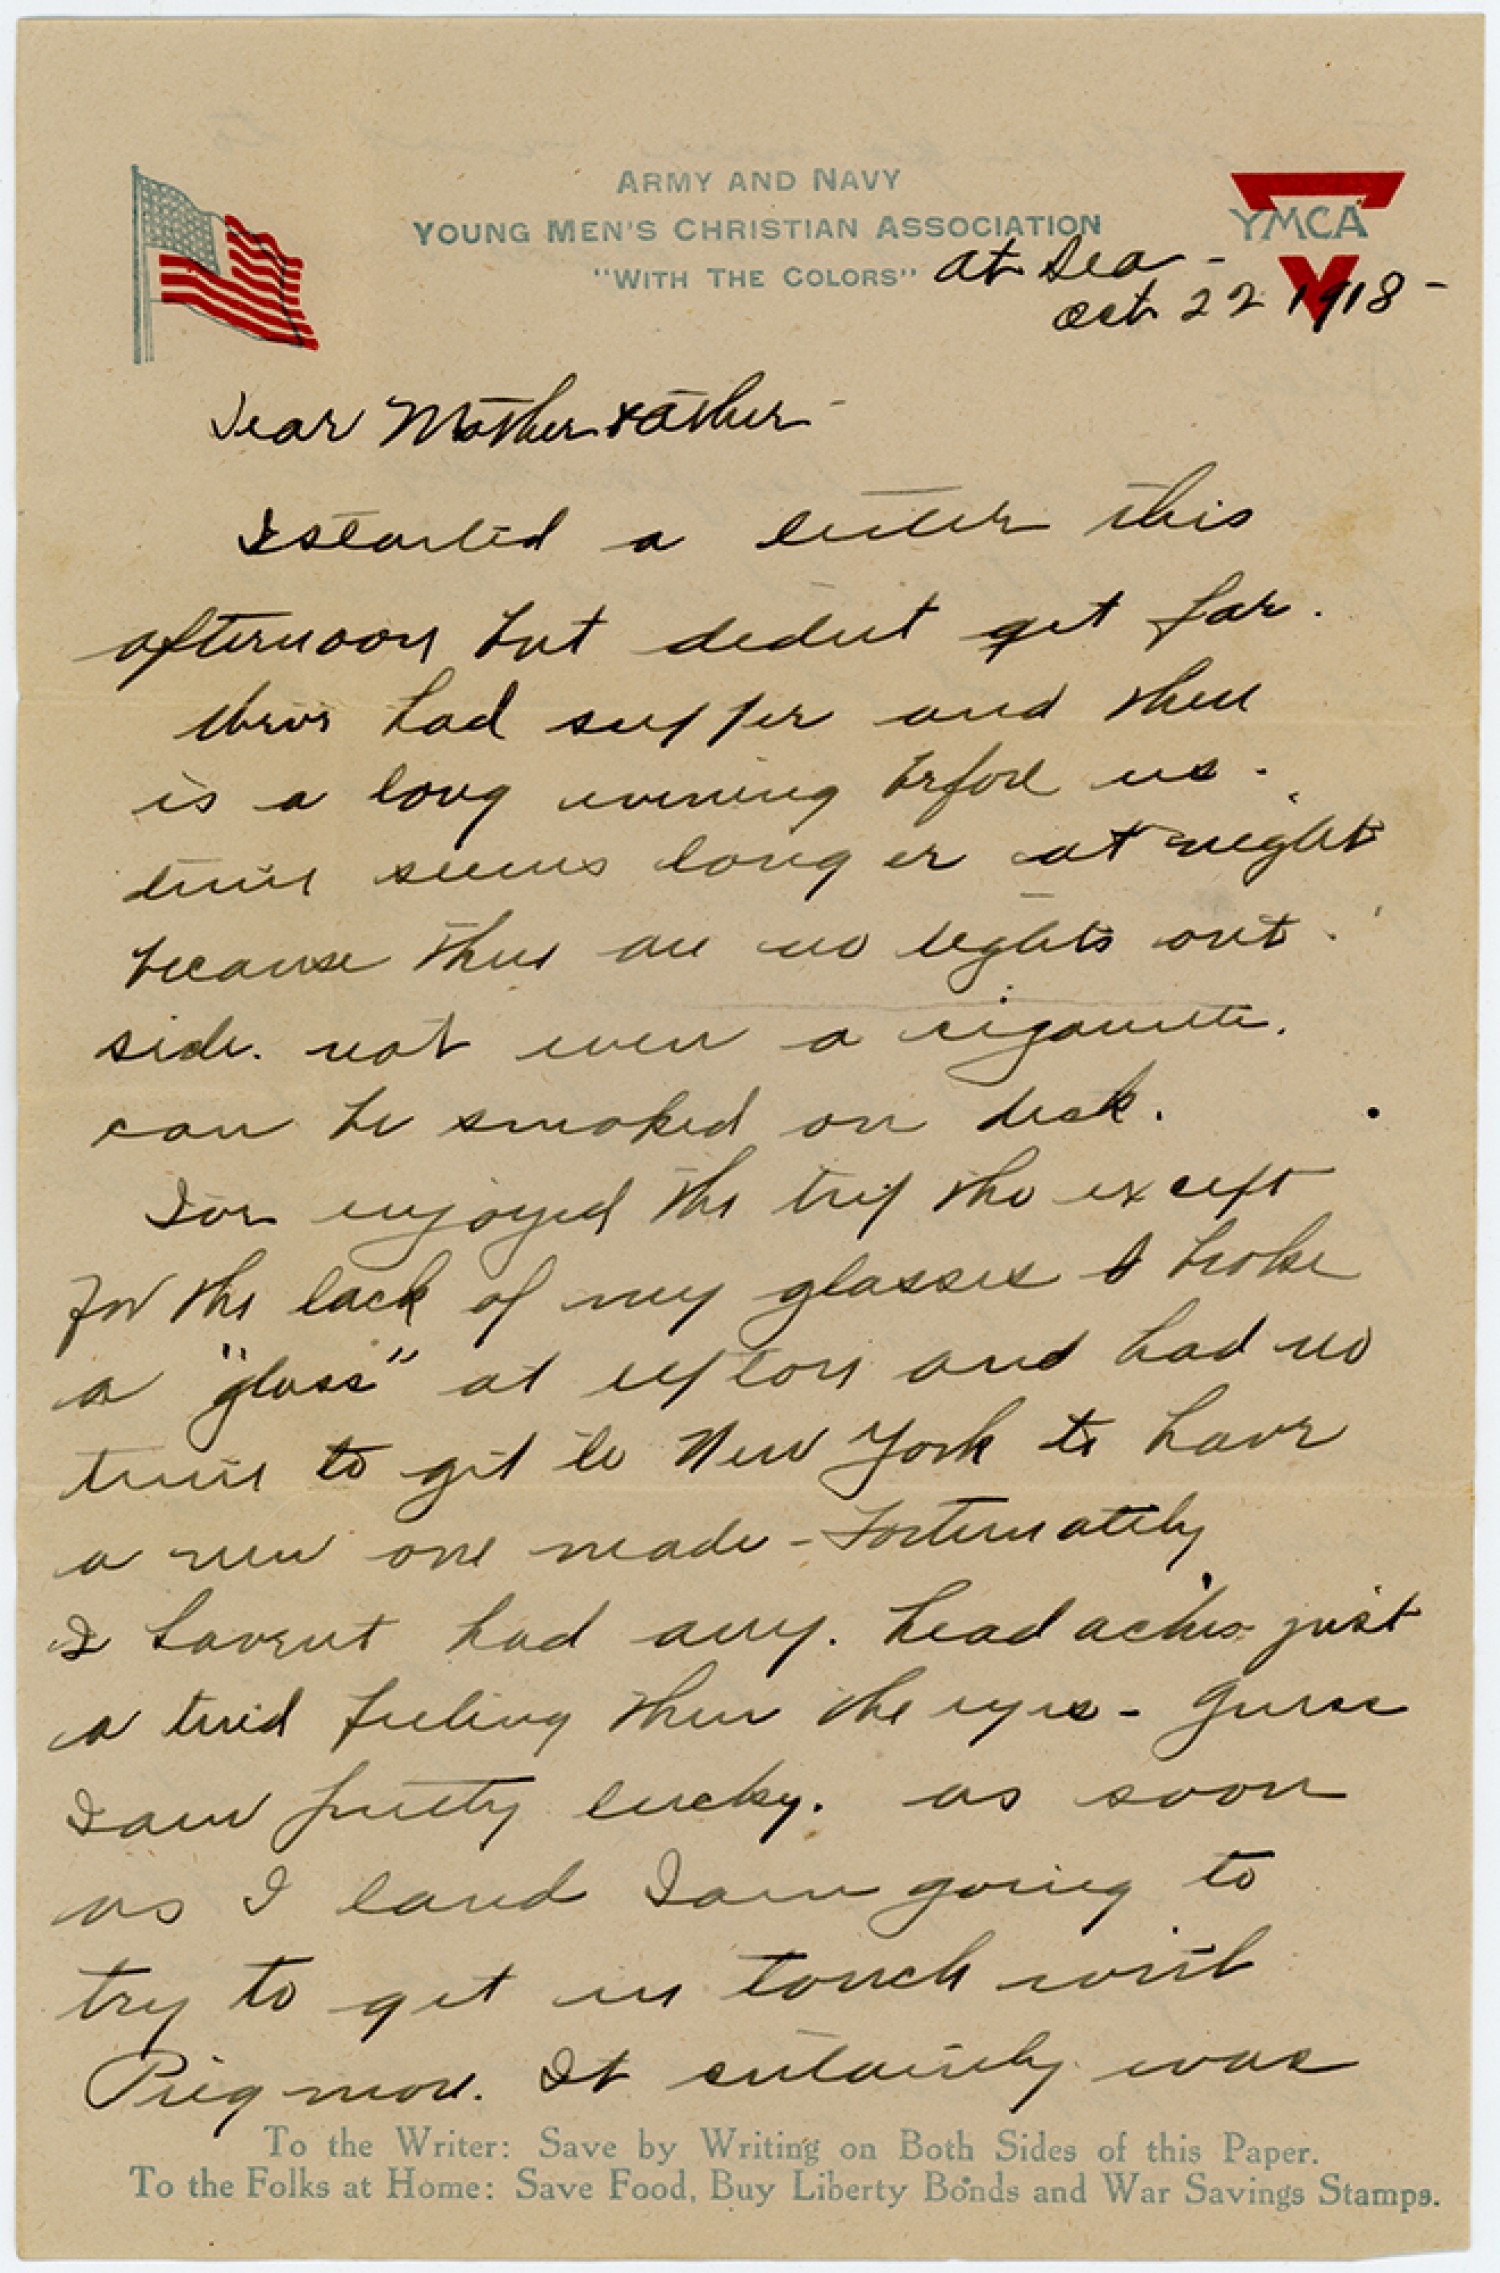 ARMY AND NAVY
YOUNG MEN'S CHRISTIAN ASSOCIATION
"WITH THE COLORS"
YMCA
at Sea -
Oct 22 1918 -
Dear Mother & Father -
I started a letter this
afternoon but didnt get far.
Weve had supper and there
is a long evening before us.
time seems longer at night
because there are no lights out
side. not even a cigarette.
can be smoked on deck.
Ive enjoyed the trip tho except
for the lack of my glasses I broke
a "glass" at Upton and had no
time to get to New York to have
a new one made - Fortunately
I havent had any. head aches just
a tired feeling then the eyes - Guess
I am pretty lucky. as soon
as I land I am going to
try to get in touch with
It certainly was
To the Writer: Save by Writing on Both Sides of this Paper.
To the Folks at Home: Save Food, Buy Liberty Bonds and War Savings Stamps.